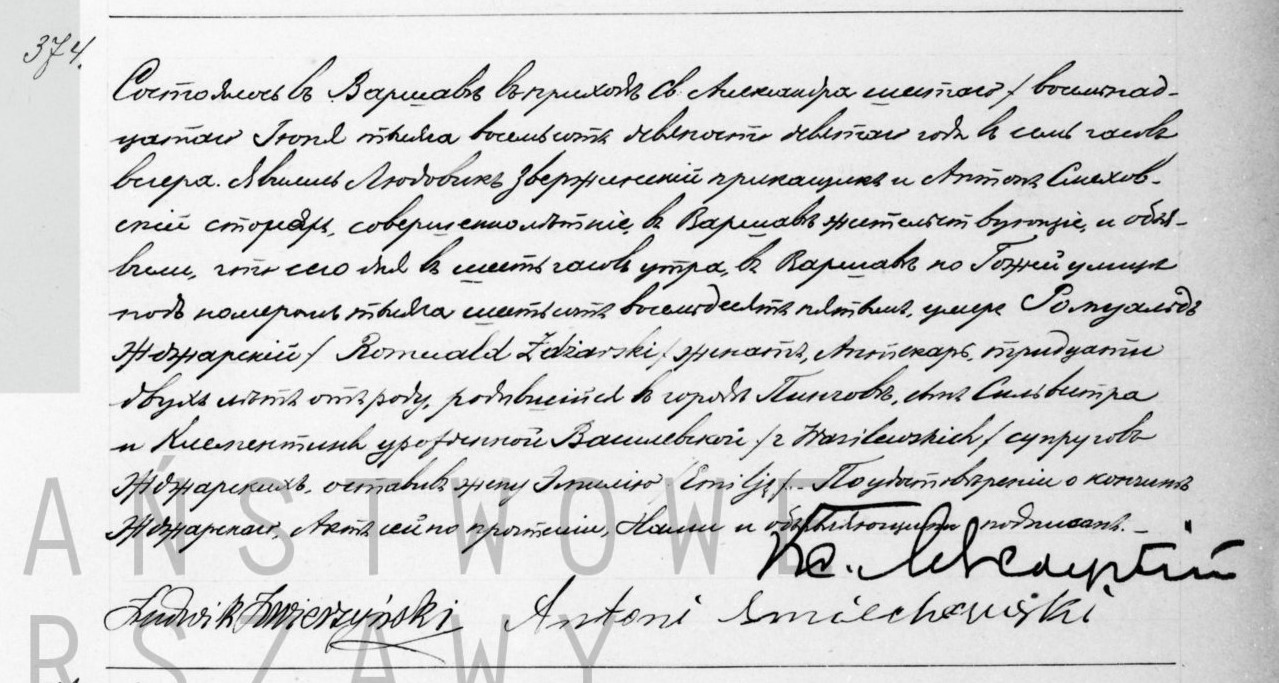 374.
Состоялось въ Варшавѣ въ приходѣ Св. Александра шестаго / восемнад-
цатаго Іюня тысяча восемьсотъ девяносто девятаго года въ семь часовъ
вечера. Явились Людовикъ Звержинскій прикащикъ и Антонъ Смехов-
скій сторожъ, совершеннолѣтніе, въ Варшавѣ жительствующіе, и объя-
вили, что сего дня въ шесть часовъ утра, въ Варшавѣ по Гожей улицѣ
подъ номеромъ тысяча шестьсотъ восемьдесятъ пятымъ, умеръ Ромуальдъ
Жджарскій / Romuald Zdżarski / женатъ, Аптекарь, тридцати
двухъ лѣтъ отъ роду, родившійся въ городѣ Пинчовѣ, сынъ Сильвестра
и Клементины урожденной Василевской / z Wasilewskich / супруговъ
Жджарскихъ, оставивъ жену Эмилію / Emilję /. По удостовѣреніи о кончинѣ
Жджарскаго, Актъ сей по прочтеніи, Нами и объявляющими подписанъ. —
Кс.
Ludwik Zwierzyński Antoni Smiechowski
AŃSTWOWE
RSZAWY